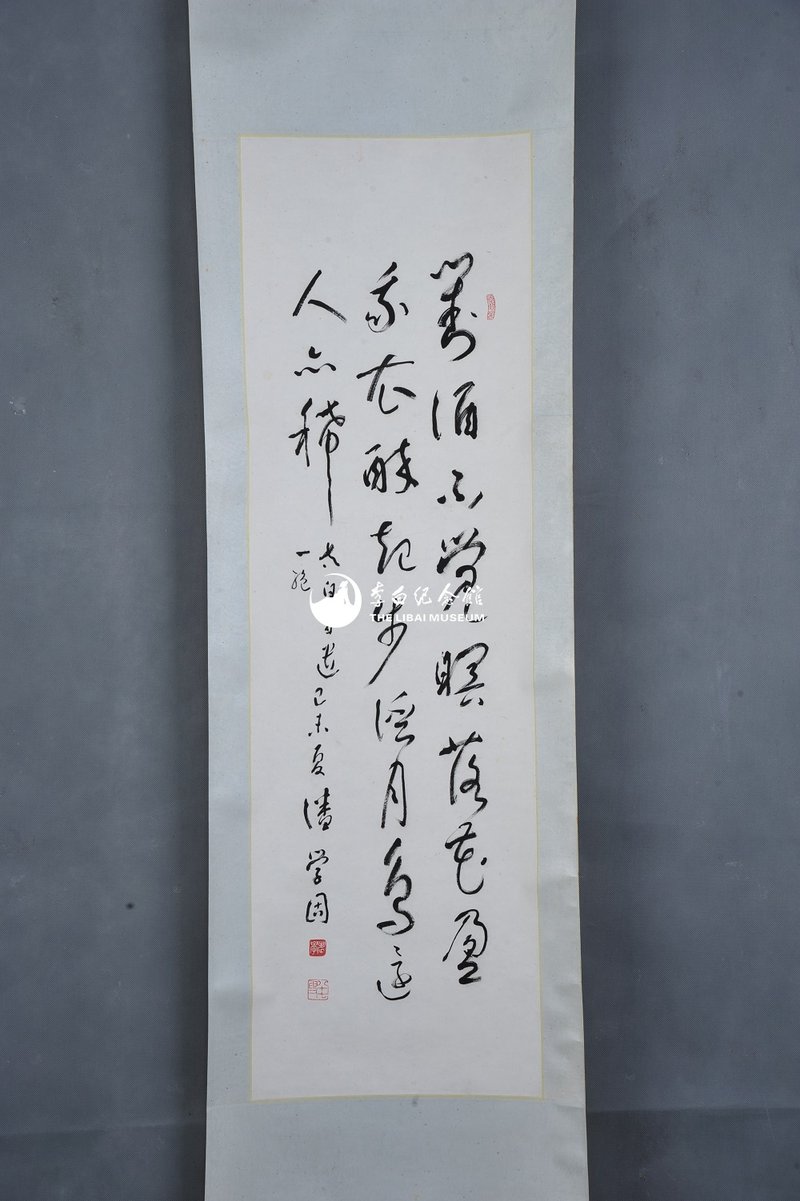 對酒不覺暝落花盈
我衣醉起步溪月鳥還
人亦稀
太白自遣己未夏潘学固
一絕
李白纪念館
THE LIBAI MUSEUM